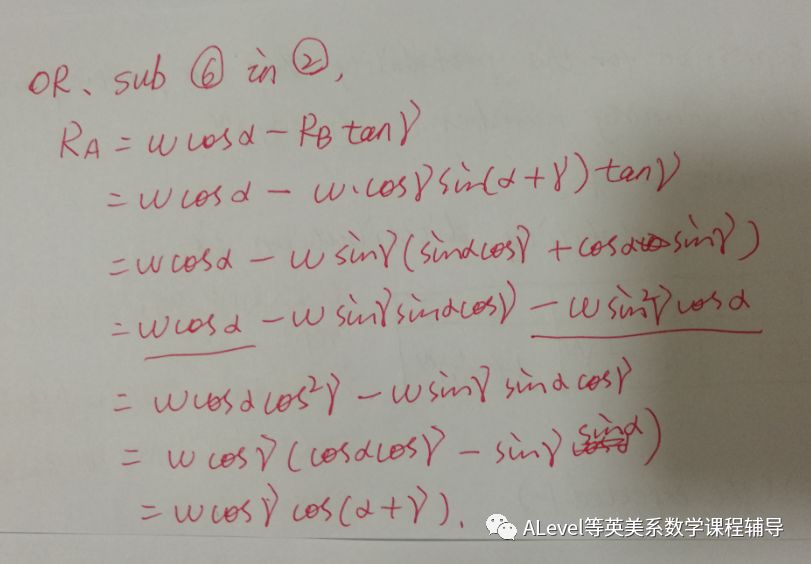 OR、sub ⑥ in ②,
R_A = w cosα − R_B tanγ
= w cosα − w·cosγ sin(α+γ) tanγ
= w cosα − w sinγ (sinα cosγ + cosα sinγ)
= w cosα − w sinγ sinα cosγ − w sin²γ cosα
= w cosα cos²γ − w sinγ sinα cosγ
= w cosγ (cosα cosγ − sinγ sinα)
= w cosγ cos(α+γ).
ALevel等英美系数学课程辅导